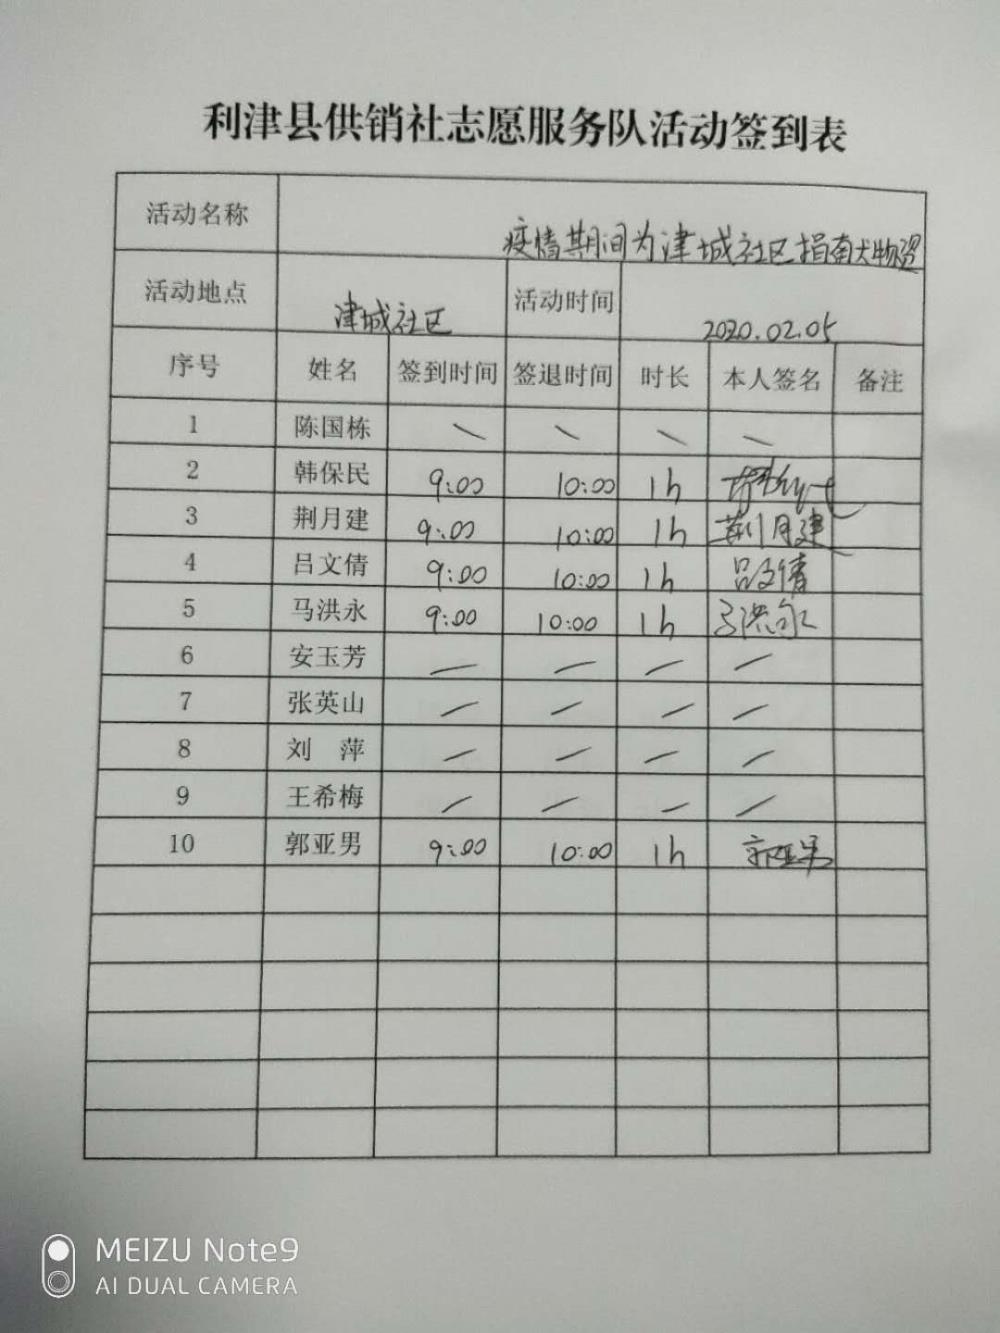 利津县供销社志愿服务队活动签到表
活动名称 疫情期间为津城社区捐献物资
活动地点 津城社区 活动时间 2020.02.05
序号 姓名 签到时间 签退时间 时长 本人签名 备注
1 陈国栋 — — — —
2 韩保民 9:00 10:00 1h
3 荆月建 9:00 10:00 1h 荆月建
4 吕文倩 9:00 10:00 1h 吕文倩
5 马洪永 9:00 10:00 1h 马洪永
6 安玉芳 — — — —
7 张英山 — — — —
8 刘 萍 — — — —
9 王希梅 — — — —
10 郭亚男 9:00 10:00 1h 郭亚男
MEIZU Note9
AI DUAL CAMERA